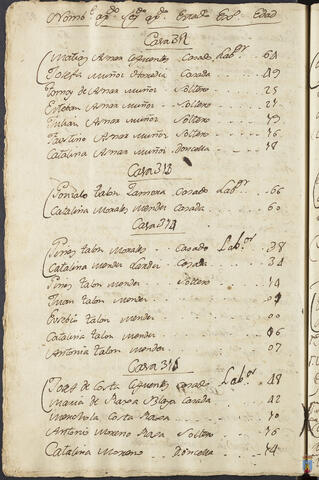 Nomb.e ap.do seg.do ap.do Estad.o Exº Edad
Casa 312
Matias Arnar Cifuentes Casado Lab.or 64
Josefa Muñoz Casada 49
Tomas de Arnar Muñoz Soltero 25
Esteban Arnar Muñoz Soltero 21
Julian Arnar Muñoz Soltero 19
Faustino Arnar Muñoz Soltero 16
Catalina Arnar Muñoz Doncella 18
Casa 313
Gonzalo talon Zamora Casado Lab.or 66
Catalina Morales Mendez Casada 60
Casa 314
Gines talon Morales Casado Lab.or 38
Catalina Mendez Casada 34
Gines talon Mendez Soltero 14
Juan talon Mendez 09
Eusebio talon Mendez 00
Catalina talon Mendez 06
Antonia talon Mendez 07
Casa 315
Josef de Corta Cifuentes Casado Lab.or 48
Maria de Casada 42
Corta 10
Antonio Moreno Soltero 16
Catalina Moreno Doncella 14